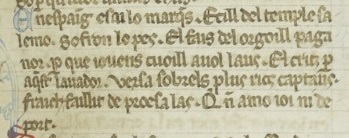 nespaig esai lo marqs. Ecill del temple sa
lemo. Sofron lo pec. El fais del orgoill paga
nor. p que iouens cuoill auol laus. El critz p
aqest lauador. Versa sobrels plus rics captans.
franch faillit de proesa las. Q n amo ioi ni de
port.